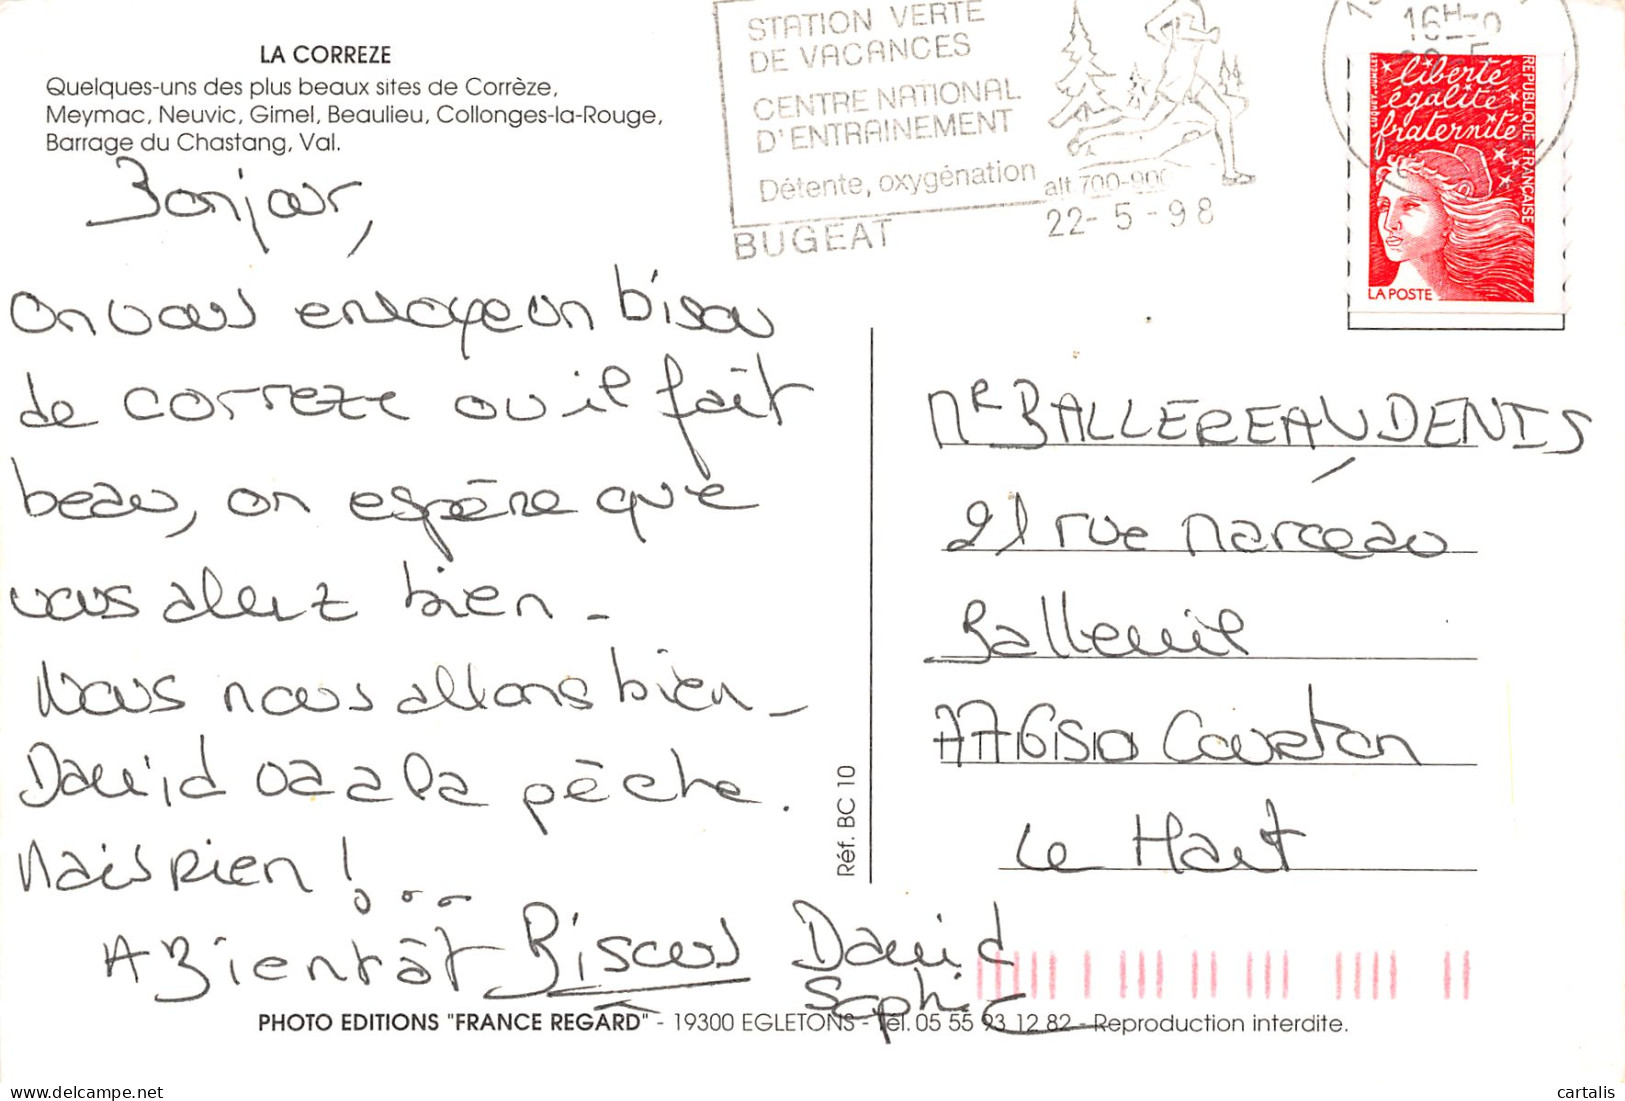 LA CORREZE
Quelques-uns des plus beaux sites de Corrèze,
Meymac, Neuvic, Gimel, Beaulieu, Collonges-la-Rouge,
Barrage du Chastang, Val.
STATION VERTE
DE VACANCES
CENTRE NATIONAL
D'ENTRAINEMENT
Détente, oxygénation alt 700-900
BUGEAT
22-5-98
16H
liberté
égalité
fraternité
REPUBLIQUE FRANÇAISE
LA POSTE
Bonjour,
On vous envoye un bisou
de correze ou il fait
beau, on espère que
vous allez bien -
Nous nous allons bien -
David va a la pêche.
Mais rien !...
A Bientôt Bisous David
Sophie
Réf. BC 10
Mr BALLEREAU DENIS
21 rue Marceau
Balleuil
77650 Courton
Le Haut
PHOTO EDITIONS "FRANCE REGARD" - 19300 EGLETONS - Tél. 05 55 93 12 82 - Reproduction interdite.
cartalis